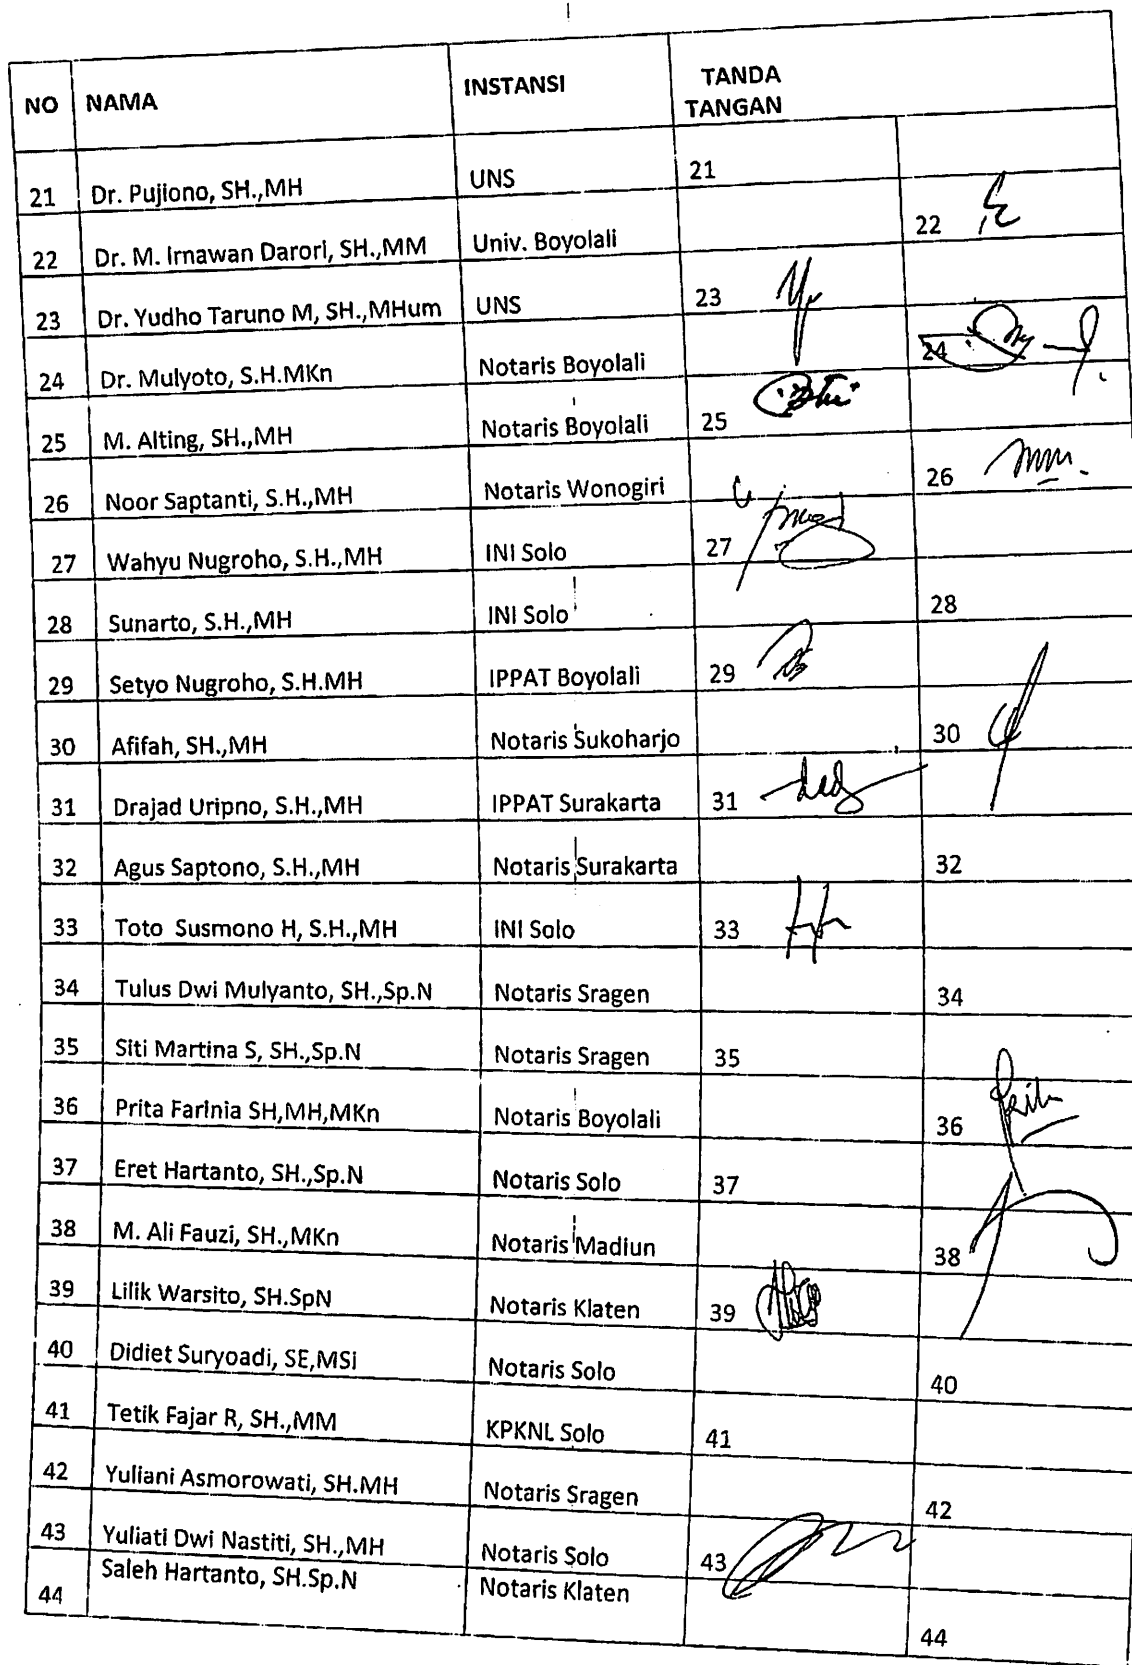 NO NAMA INSTANSI TANDA
TANGAN
21 Dr. Pujiono, SH.,MH UNS 21
22 Dr. M. Irnawan Darori, SH.,MM Univ. Boyolali 22
23 Dr. Yudho Taruno M, SH.,MHum UNS 23
24 Dr. Mulyoto, S.H.MKn Notaris Boyolali 24
25 M. Alting, SH.,MH Notaris Boyolali 25
26 Noor Saptanti, S.H.,MH Notaris Wonogiri 26
27 Wahyu Nugroho, S.H.,MH INI Solo 27
28 Sunarto, S.H.,MH INI Solo 28
29 Setyo Nugroho, S.H.MH IPPAT Boyolali 29
30 Afifah, SH.,MH Notaris Sukoharjo 30
31 Drajad Uripno, S.H.,MH IPPAT Surakarta 31
32 Agus Saptono, S.H.,MH Notaris Surakarta 32
33 Toto Susmono H, S.H.,MH INI Solo 33
34 Tulus Dwi Mulyanto, SH.,Sp.N Notaris Sragen 34
35 Siti Martina S, SH.,Sp.N Notaris Sragen 35
36 Prita Farinia SH,MH,MKn Notaris Boyolali 36
37 Eret Hartanto, SH.,Sp.N Notaris Solo 37
38 M. Ali Fauzi, SH.,MKn Notaris Madiun 38
39 Lilik Warsito, SH.SpN Notaris Klaten 39
40 Didiet Suryoadi, SE,MSi Notaris Solo 40
41 Tetik Fajar R, SH.,MM KPKNL Solo 41
42 Yuliani Asmorowati, SH.MH Notaris Sragen 42
43 Yuliati Dwi Nastiti, SH.,MH Notaris Solo 43
44 Saleh Hartanto, SH.Sp.N Notaris Klaten 44